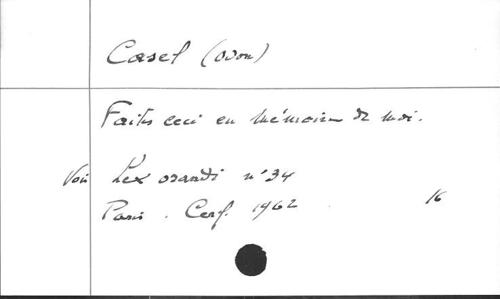 Casel (Odon)
Faites ceci en mémoire de moi.
Voir Lex orandi n° 34
Paris. Cerf. 1962. 16